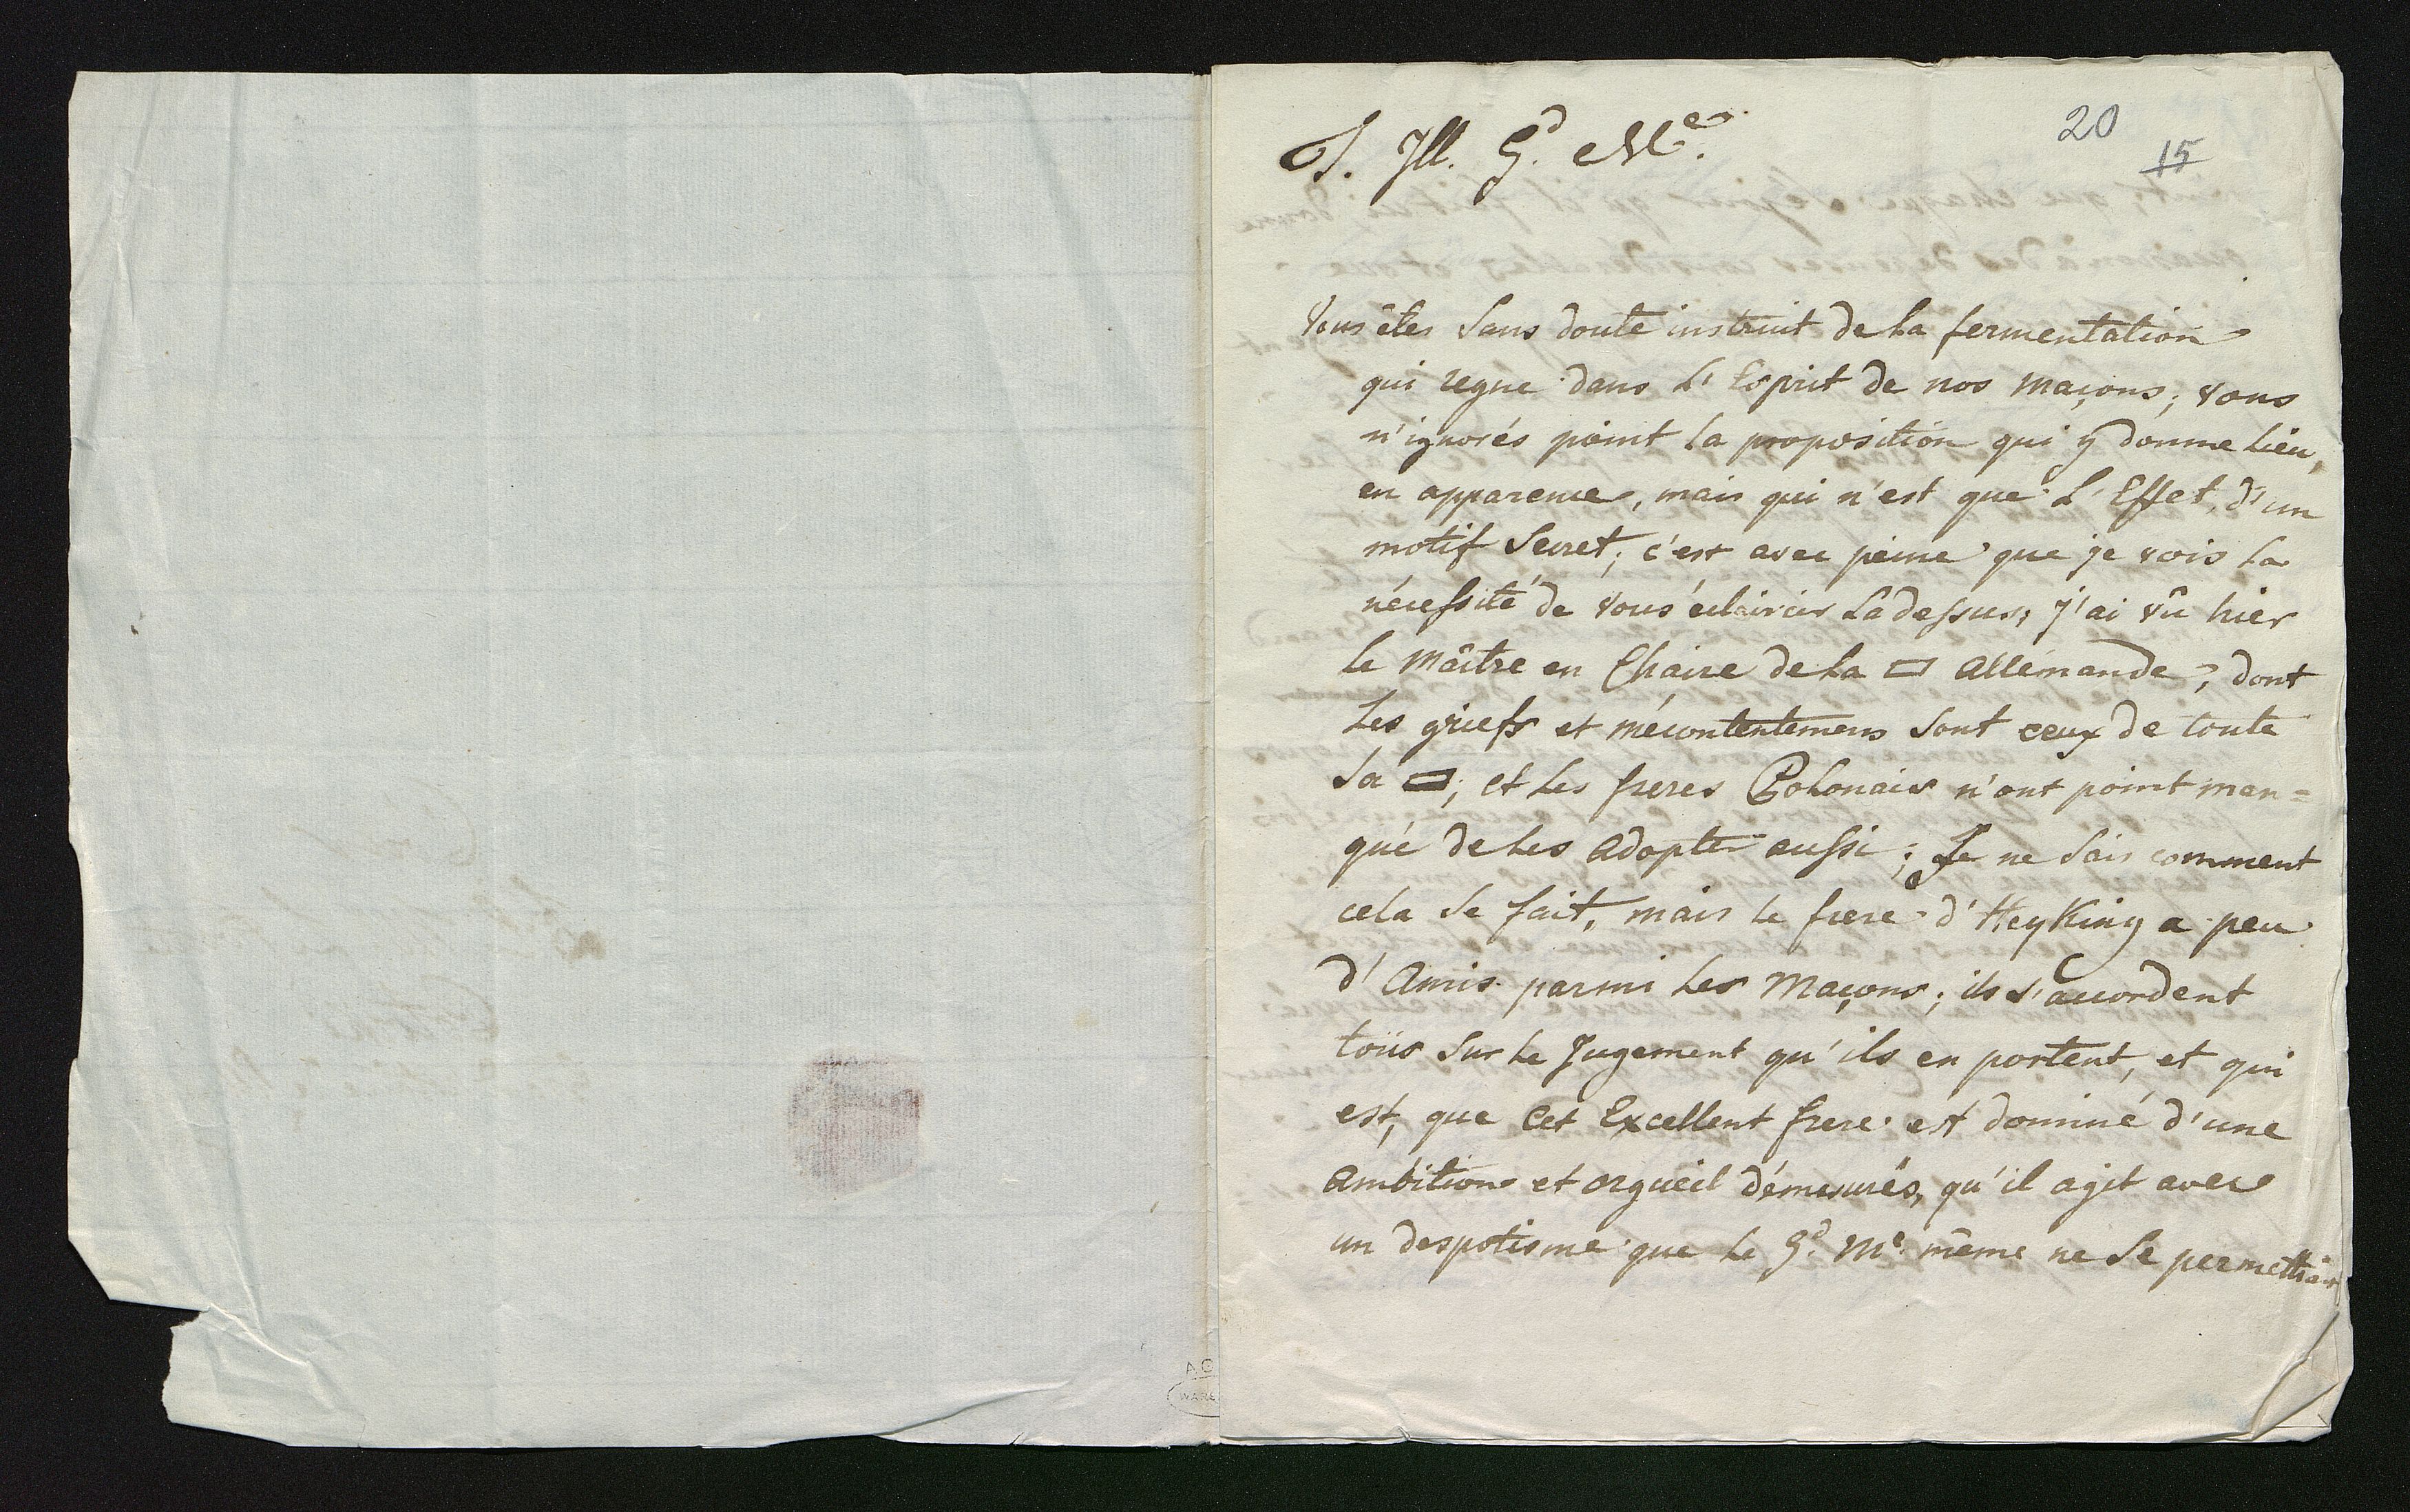 20
15
T. Ill. G.d M.e
Vous êtes sans doute instruit de la fermentation
qui regne dans L'Esprit de nos maçons; vous
n'ignorés point la proposition qui y donne lieu,
en apparence, mais qui n'est que L'Effet, d'un
motif Secret; c'est avec peine que je vois la
nécessité de vous éclaircir Ladessus; j'ai vû hier
le maître en Chaire de la ▭ allemande, dont
Les griefs et mécontentemens sont ceux de toute
Sa ▭; et Les freres Polonais n'ont point man=
qué de Les adopter aussi; Je ne sais comment
cela se fait, mais le frere d'HeyKing a peu
d'Amis parmi Les Maçons; ils s'accordent
toüs sur le Jugement qu'ils en portent, et qui
est, que Cet Excellent frere est dominé d'une
ambition et orgueil démesurés, qu'il agit avec
un despotisme que le G.d M.e même ne se permettrait